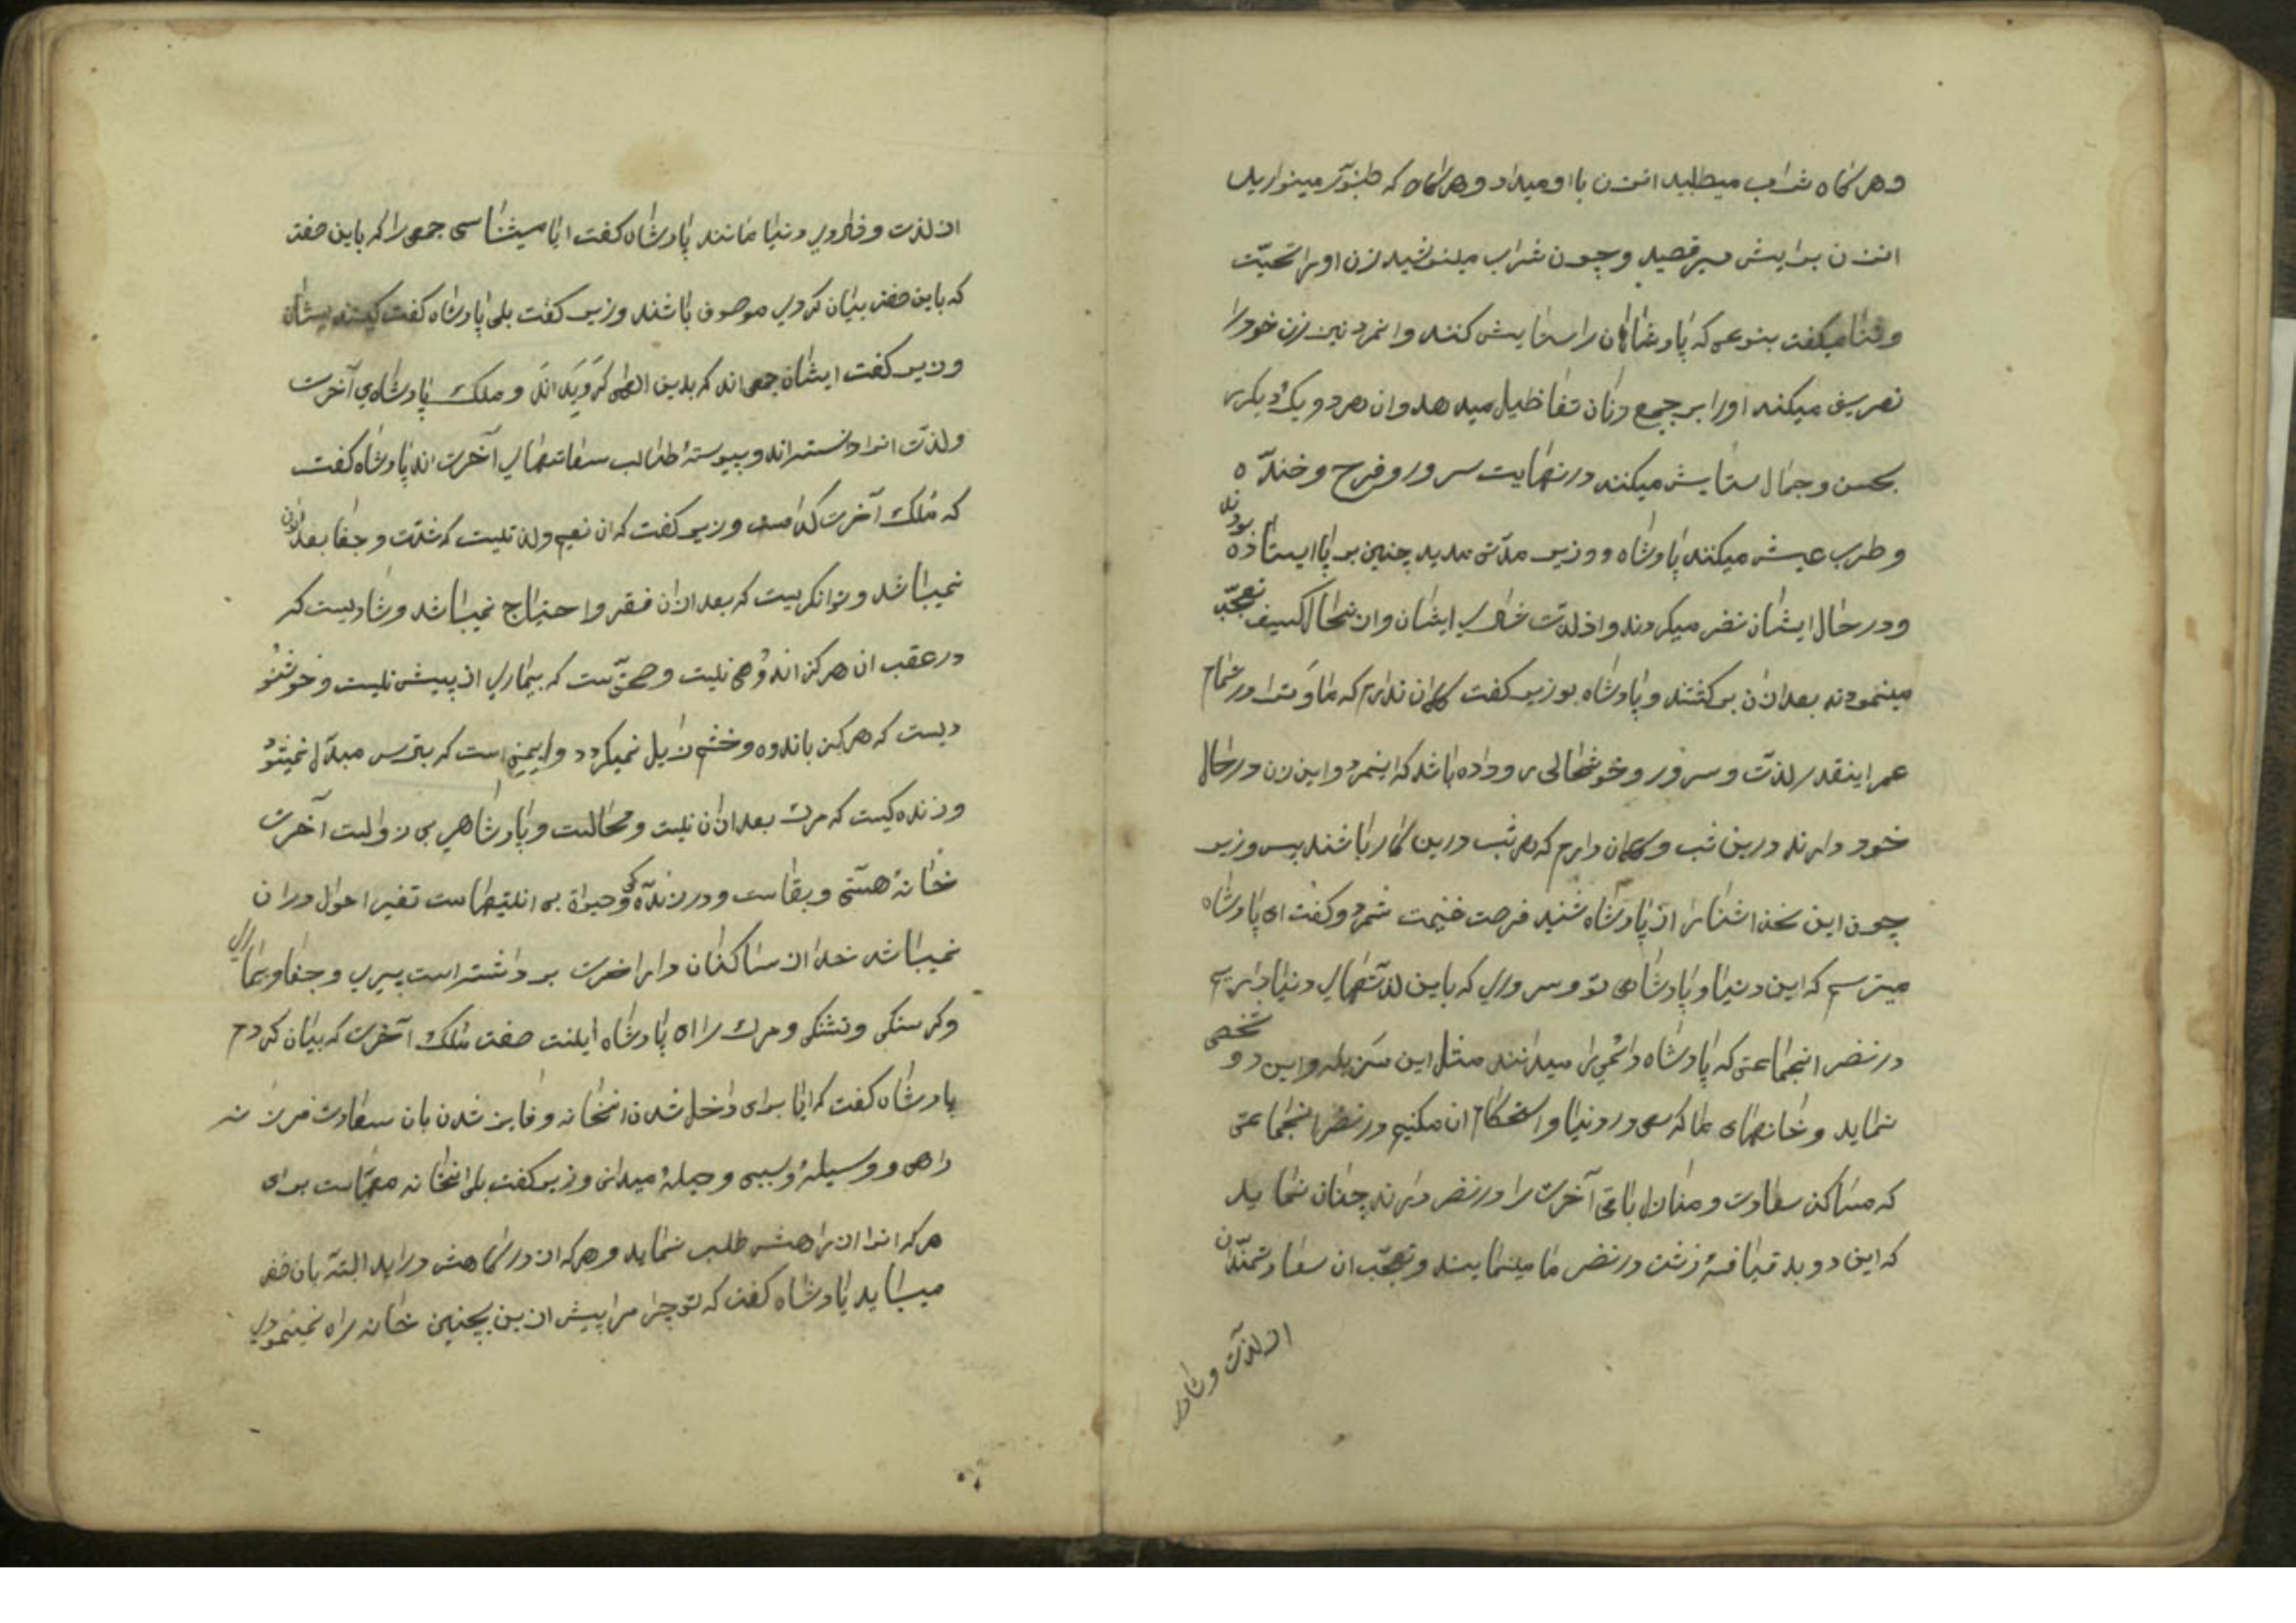 وهرکاه شراب میطلبید انزن بااو میداد وهرکاه که طنبور مینوازید
انزن برایش میرقصید وچون شراب مینوشید زن اورا تحیّت
وثنا میکفت بنوعی که پادشاهان راستایش کنند وانمرد نیز زن خودرا
تعریف میکند اورا بر جمیع زنان تفاظیل میدهد وان هردو یک دیکررا
بحسن وجمال ستایش میکنند درنهایت سرور وفرح وخنده
وطرب عیش میکنند پادشاه ووزیر مدّتی مدید چنین برپا ایستاده بودند
ودرحال ایشان نضر میکردند واز لذّت شادی ایشان وان حال کثیف تعجّب
مینمودند بعد ازان برکشتند وپادشاه بوزیر کفت کمان ندارم که ما وترا درتمام
عمر اینقدر لذّت وسرور وخوشحالی روداده باشد که اینمرد واین زن درحال
خود دارند درین شب وکمان دارم که هرشب درین کار باشند پس وزیر
چون این سخن اشنا را از پادشاه شنید فرصت غنیمت شمرد وکفت ای پادشاه
میترسم که این دنیا وپادشاهی تو وسروری که باین لذّتهای دنیا داریم
درنضر انجماعتی که پادشاه دائمی را میدانند مثل این مزبله واین دو شخص
نماید وخانهای ما که سعی در دنیا واستحکام ان میکنیم درنضر انجماعتی
که مساکن سعادت ومنازل باقی آخرت را درنضر دارند چنان نماید
که این دو بد قیافهٔ زشت درنضر ما مینمایند وتعجّب ان سعادتمندان
از لذّت وشادی
از لذت وشادی دنیا مانند پادشاه کفت ایا میشناسی جمعی را که باین صفت
که باین صفت بیان کردی موصوف باشند وزیر کفت بلی پادشاه کفت کیستند ایشان
وزیر کفت ایشان جمعی اند که بدین الهی کرویده اند وملک پادشاهی آخرت
ولذّت انرا دانسته اند وپیوسته طالب سعادتهای آخرت اند پادشاه کفت
که ملک آخرت کدامست وزیر کفت که ان نعیم ولذتیست که شدّت وجفا بعد ازان
نمیباشد وتوانکریست که بعد ازان فقر واحتیاج نمیباشد وشادیست که
درعقب ان هرکز اندوهی نیست وصحّتیست که بیماری از پیش نیست وخوشنو
دیست که هرکز باندوه وخشم زایل نمیکردد وایمنی است که بترس مبدّل نمیشود
وزنده کیست که مرک بعد ازان نیست ومحالست وپادشاهی بی زوالیست آخرت
خانهٔ هستی وبقاست ودر زنده کی وحیوة بی انتهاست تغیر احوال دران
نمیباشد خدا از ساکنان دار اخرت برداشته است پیری وجفا وبیماری
وکرسنکی وتشنکی ومرک را ای پادشاه اینست صفت ملک آخرت که بیان کردم
پادشاه کفت که ایا برای داخل شدن انخانه وفایز شدن بان سعادت فرزانه
راهی ووسیلهٔ وسببی وحیلهٔ میدانی وزیر کفت بلی انخانه مهیّاست برای
هرکه انرا از راهش طلب نماید وهرکه از درکاهش دراید البتّه بان ظفر
میابد پادشاه کفت که تو چرا مرا پیش ازین بچنین خانه راه نمینمودی